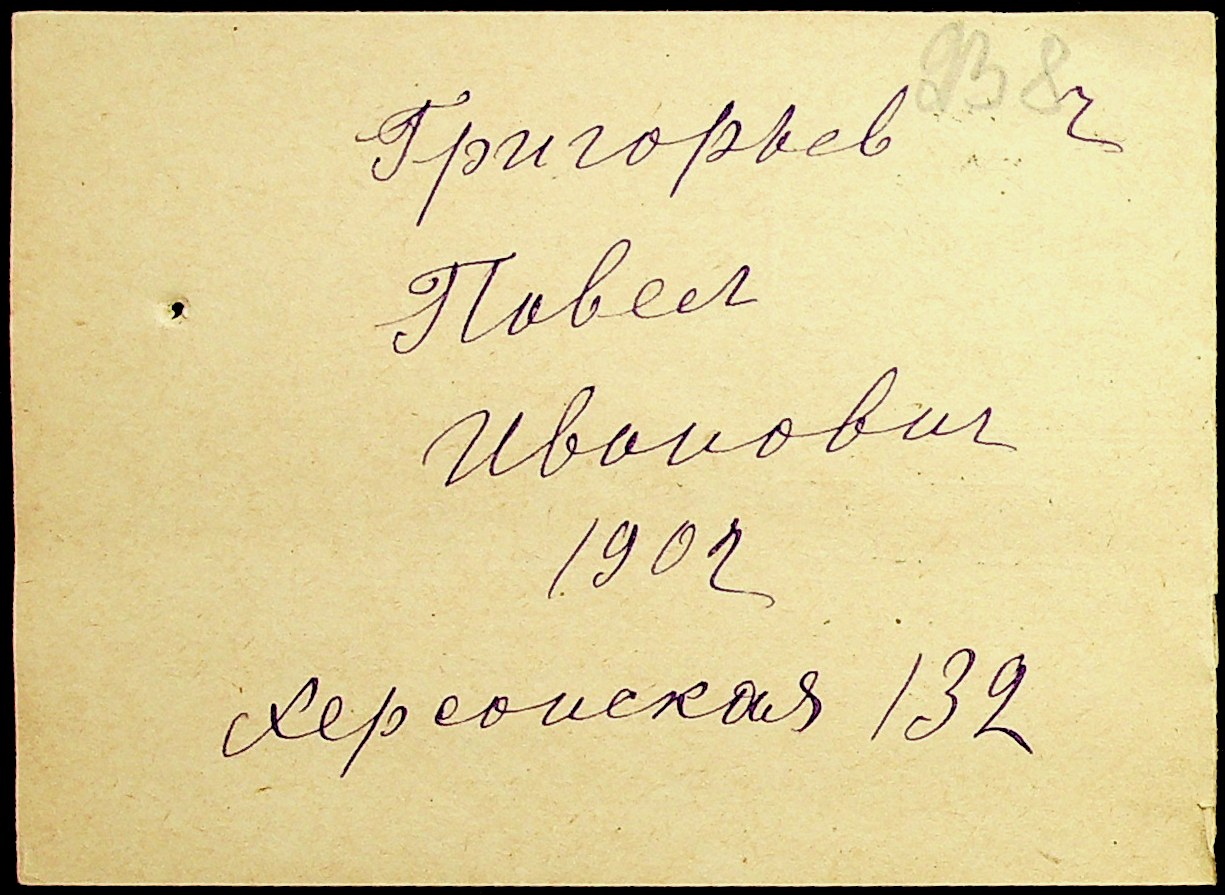 938
Григорьев 2
Павел
Иванович
1902
Херсонская 132